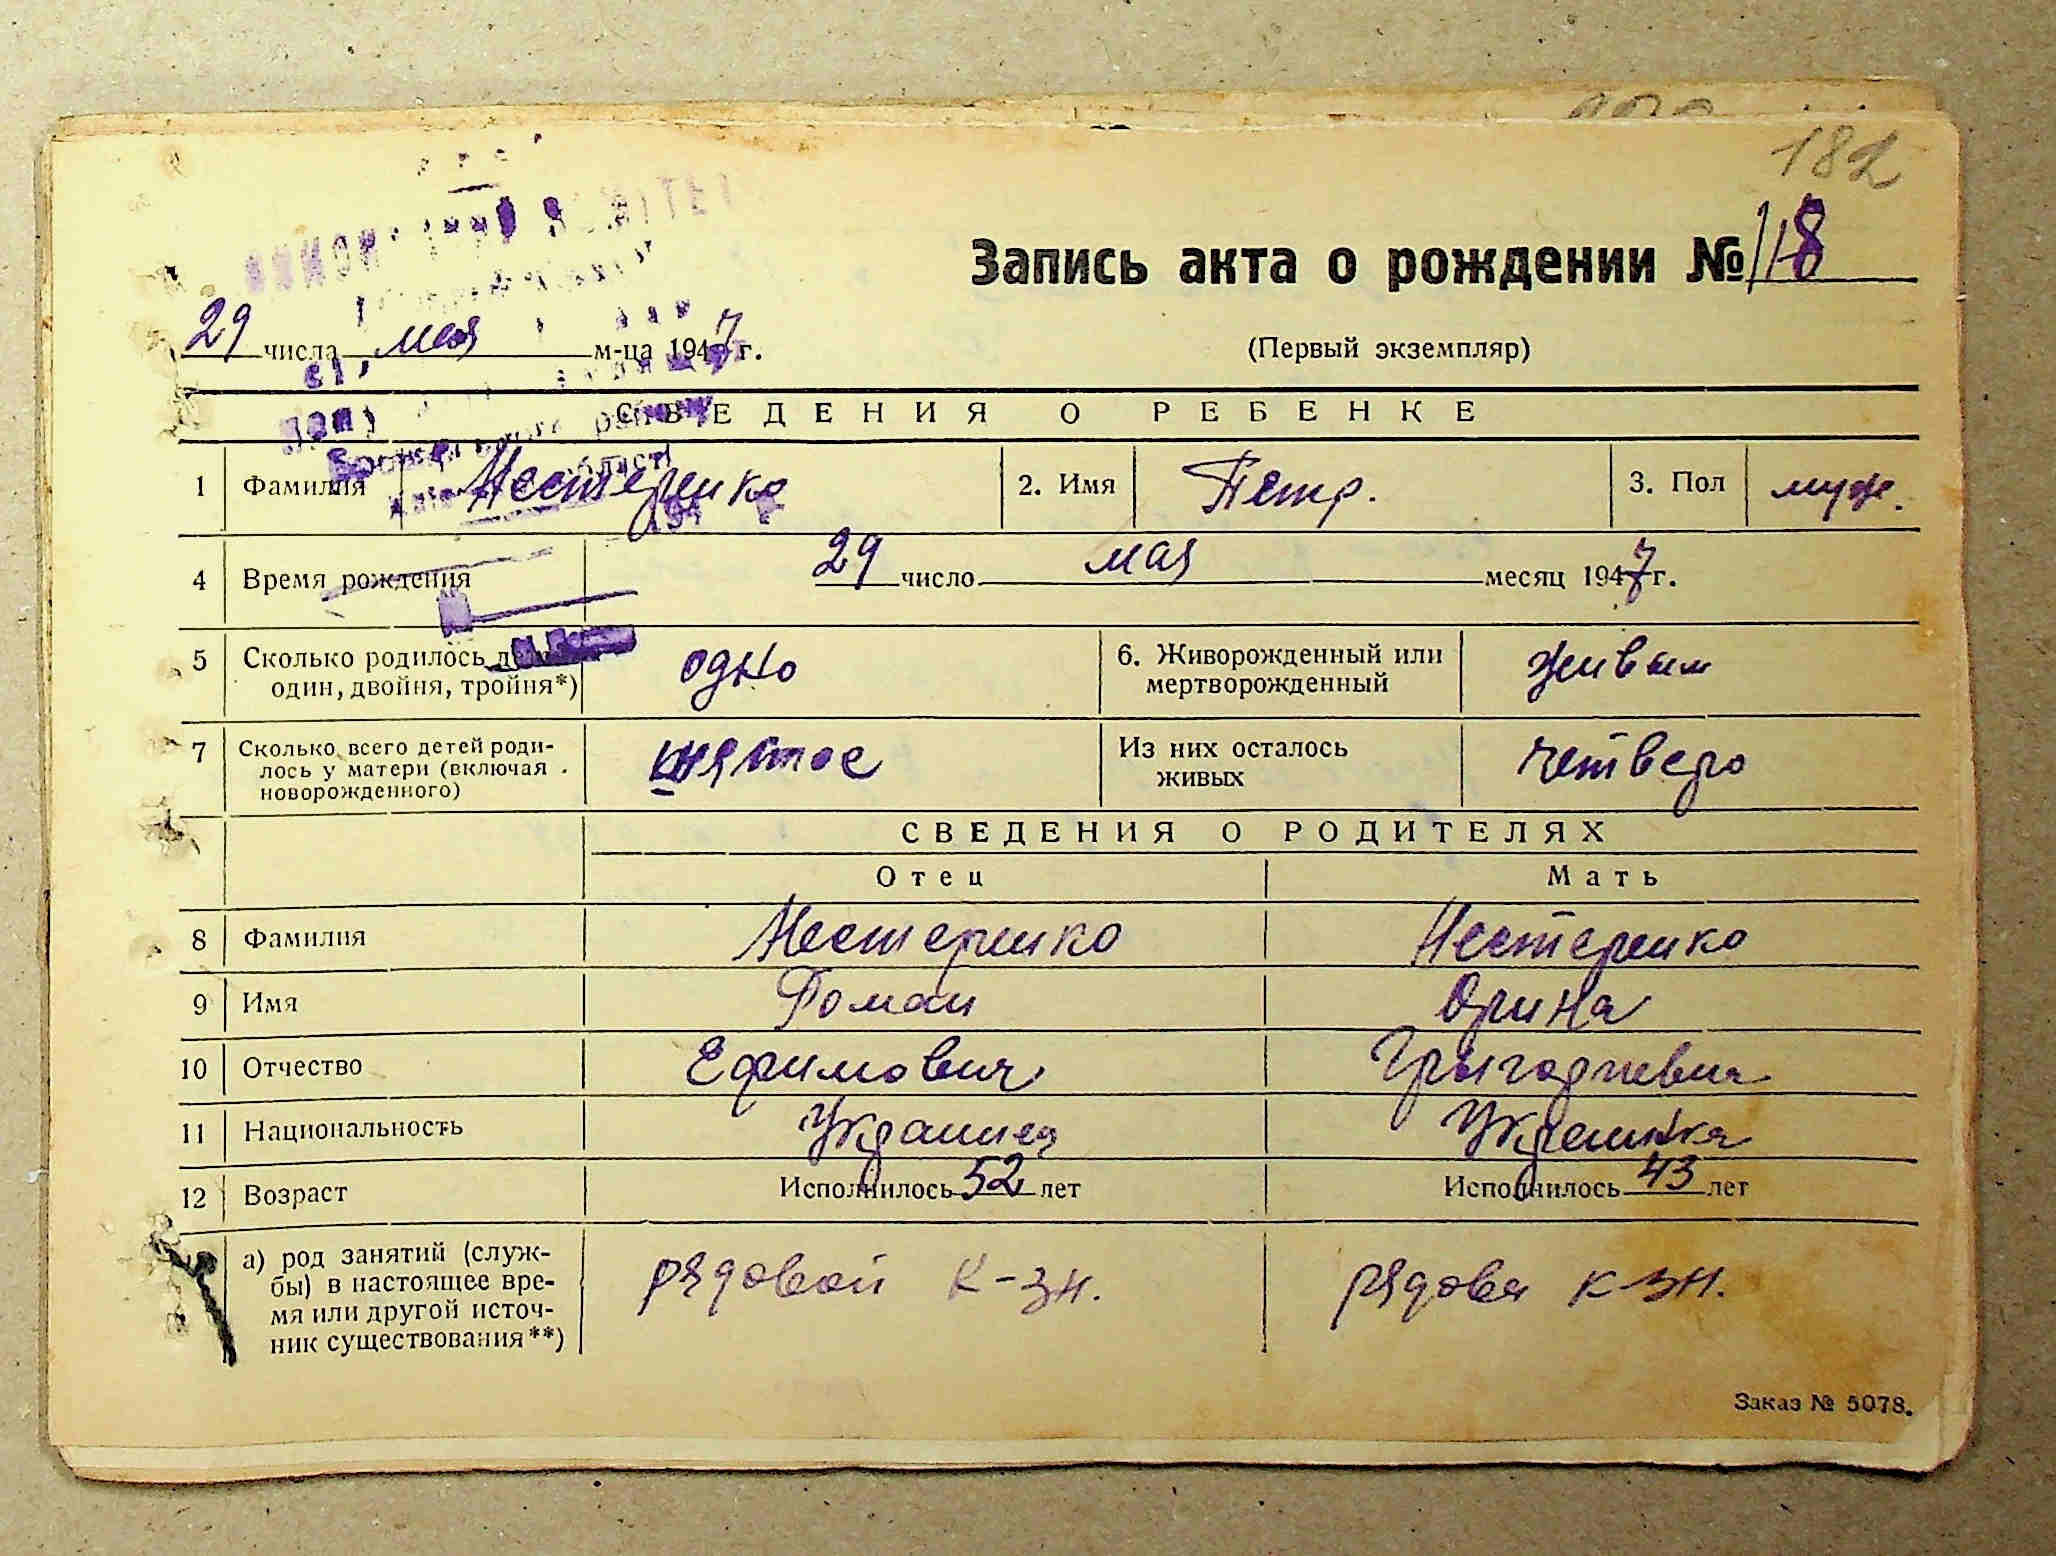 182
Запись акта о рождении № 118
29 числа мая м-ца 1947 г.
(Первый экземпляр)
СВЕДЕНИЯ О РЕБЕНКЕ
1 Фамилия Нестеренко 2. Имя Петр. 3. Пол муж.
4 Время рождения 29 число мая месяц 1947 г.
5 Сколько родилось
один, двойня, тройня*) одно 6. Живорожденный или
мертворожденный живым
7 Сколько всего детей роди-
лось у матери (включая
новорожденного) пятое Из них осталось
живых четверо
СВЕДЕНИЯ О РОДИТЕЛЯХ
Отец Мать
8 Фамилия Нестеренко Нестеренко
9 Имя Роман Орина
10 Отчество Ефимович Григорьевна
11 Национальность Украинец Украинка
12 Возраст Исполнилось 52 лет Исполнилось 43 лет
а) род занятий (служ-
бы) в настоящее вре-
мя или другой источ-
ник существования**) рядовой к-зн. рядовая к-зн.
Заказ № 5078.